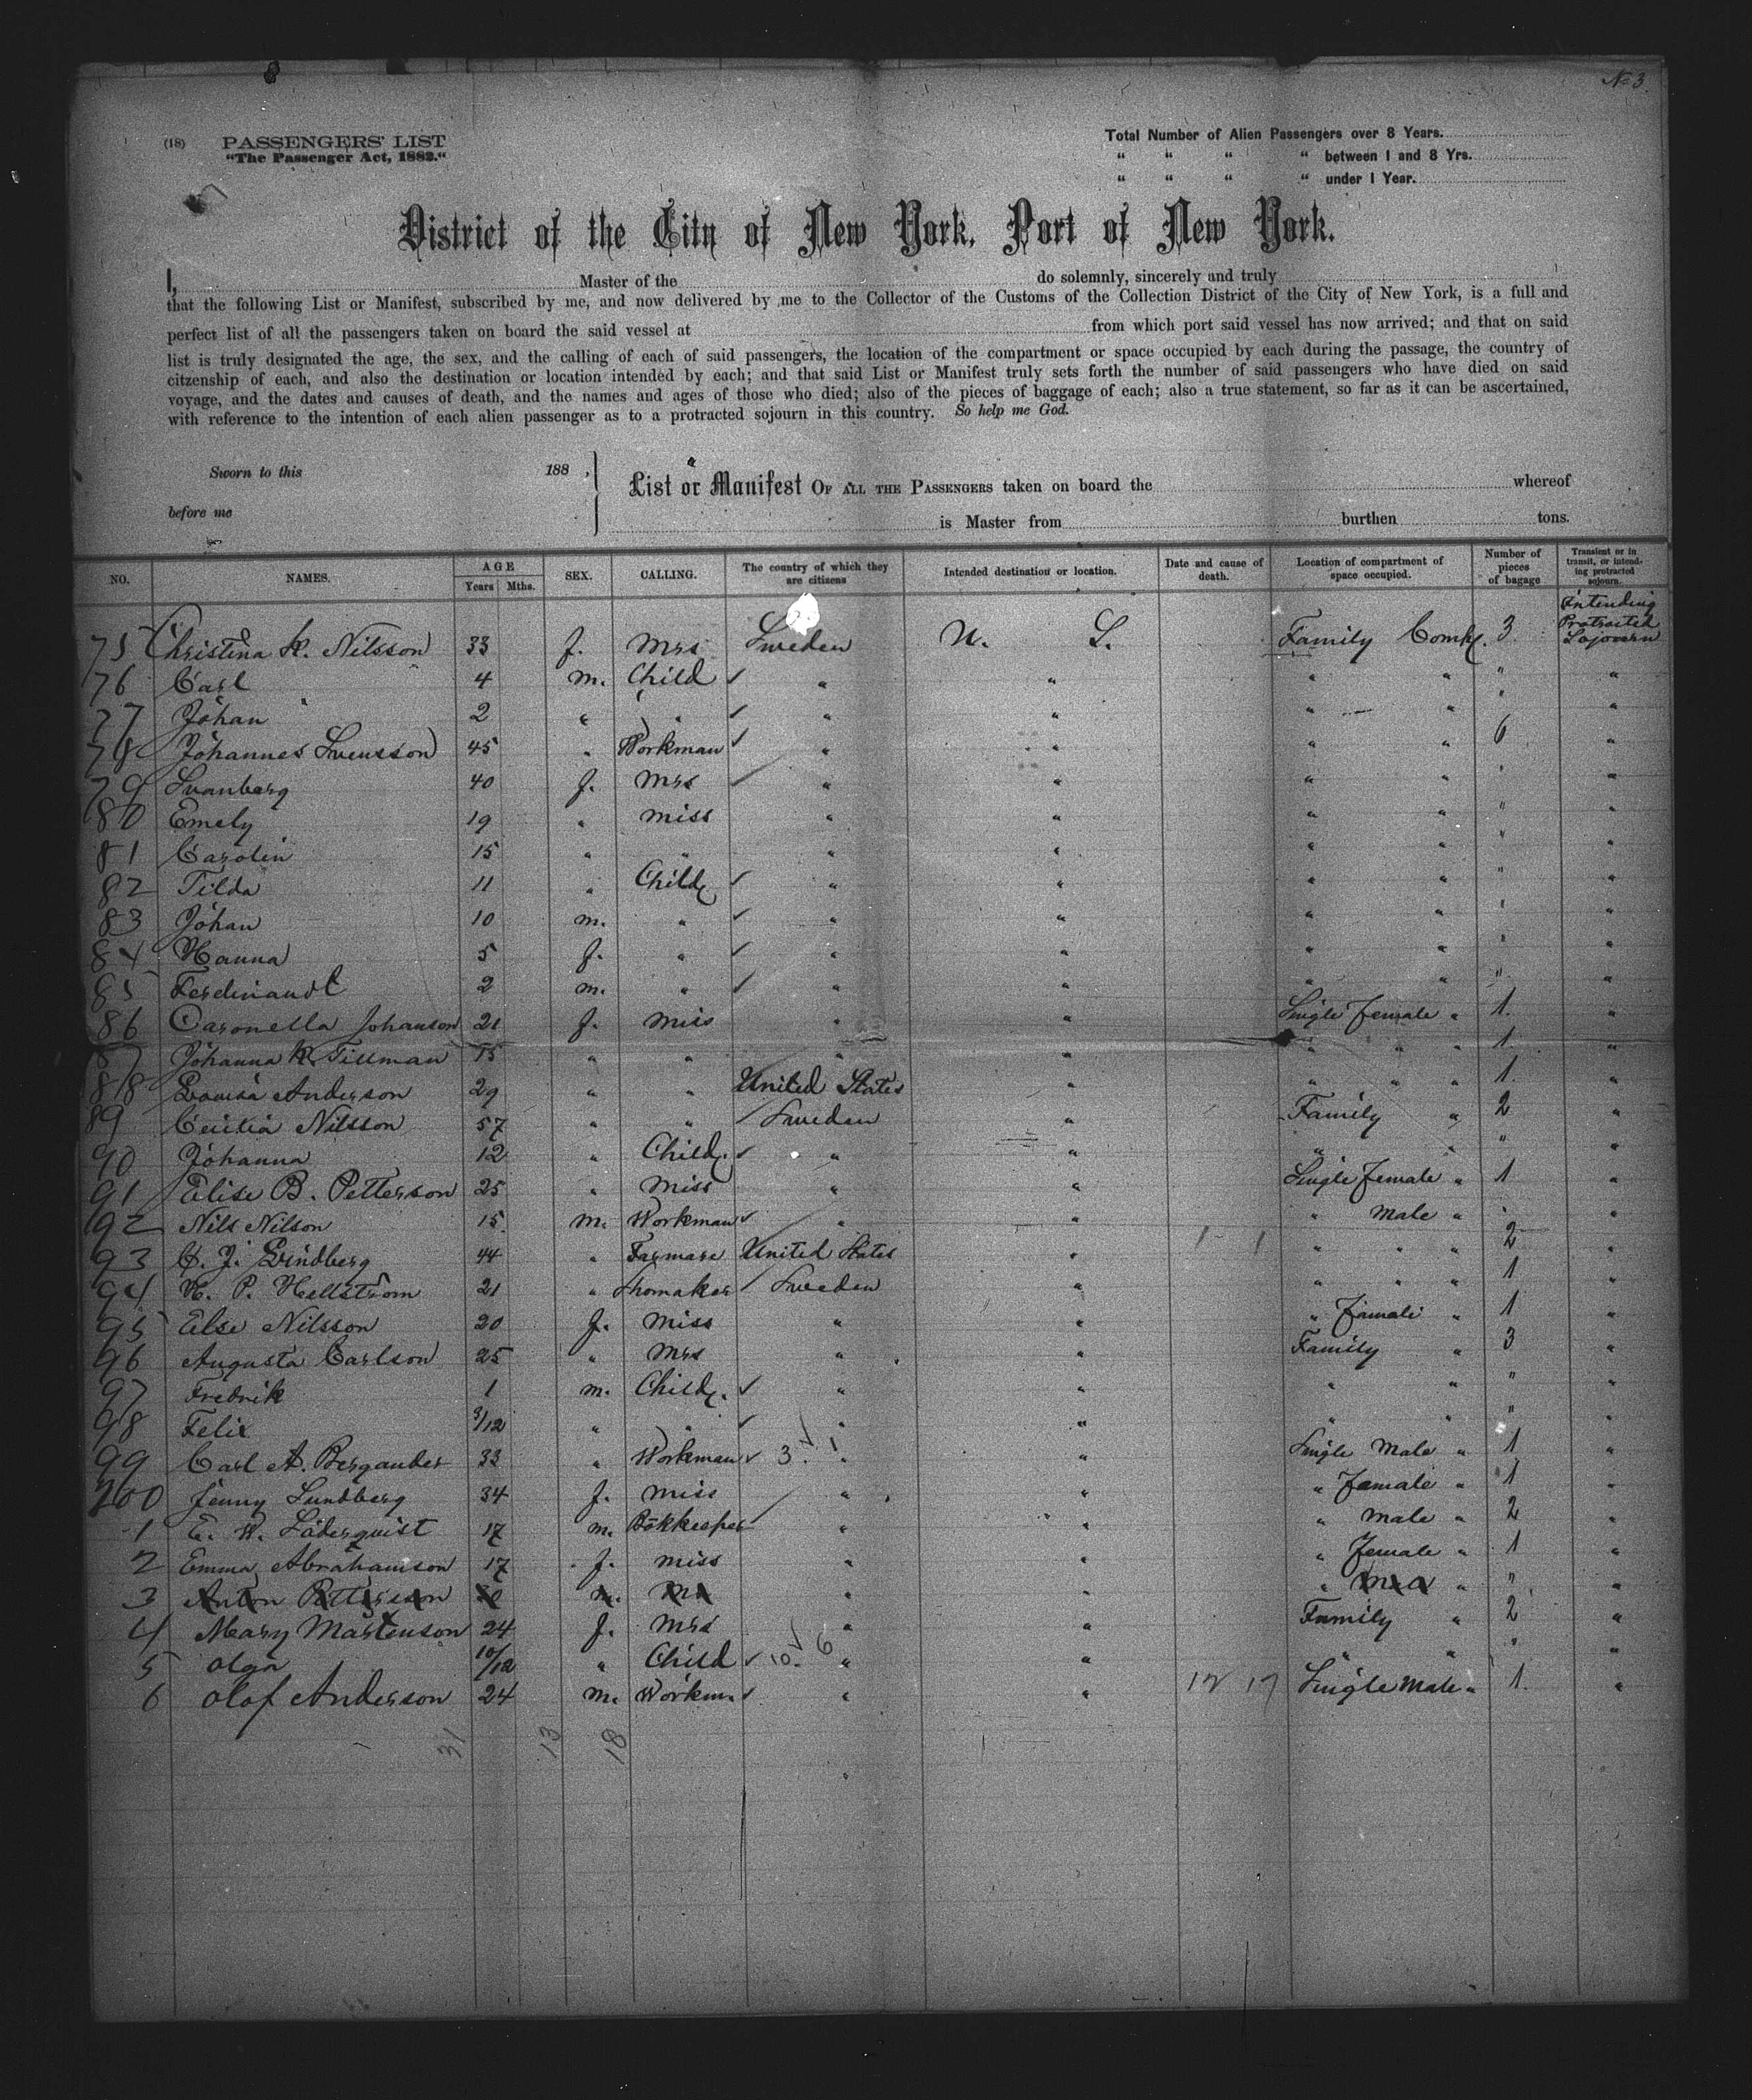 No 3
(18) PASSENGERS' LIST
"The Passenger Act, 1882."
Total Number of Alien Passengers over 8 Years.
" " " " between 1 and 8 Yrs.
" " " " under 1 Year.
District of the City of New York, Port of New York.
I, Master of the do solemnly, sincerely and truly
that the following List or Manifest, subscribed by me, and now delivered by me to the Collector of the Customs of the Collection District of the City of New York, is a full and
perfect list of all the passengers taken on board the said vessel at from which port said vessel has now arrived; and that on said
list is truly designated the age, the sex, and the calling of each of said passengers, the location of the compartment or space occupied by each during the passage, the country of
citzenship of each, and also the destination or location intended by each; and that said List or Manifest truly sets forth the number of said passengers who have died on said
voyage, and the dates and causes of death, and the names and ages of those who died; also of the pieces of baggage of each; also a true statement, so far as it can be ascertained,
with reference to the intention of each alien passenger as to a protracted sojourn in this country. So help me God.
Sworn to this 188 ,
before me
List or Manifest OF ALL THE PASSENGERS taken on board the whereof
is Master from burthen tons.
NO. NAMES. AGE Years Mths. SEX. CALLING. The country of which they are citizens Intended destination or location. Date and cause of death. Location of compartment of space occupied. Number of pieces of bagage Transient or in transit, or intending protracted sojourn.
75 Christina K. Nilsson 33 f. Mrs Sweden U. S. Family Comp. 3 Intending Protracted Sojourn
76 Carl " 4 m. Child " " " " " "
77 Johan " 2 " " " " " " " "
78 Johannes Svensson 45 " Workman " " " " 6 "
79 Svanberg 40 f. Mrs " " " " " "
80 Emely 19 " Miss " " " " " "
81 Carolin 15 " " " " " " " "
82 Tilda 11 " Child " " " " " "
83 Johan 10 m. " " " " " " "
84 Hanna 5 f. " " " " " " "
85 Ferdinand 2 m. " " " " " " "
86 Caronella Johanson 21 f. Miss " " Single female " 1. "
87 Johanna K. Tillman 15 " " " " " " " 1. "
88 Lovisa Anderson 29 " " United States " " " " 1. "
89 Cecilia Nilsson 57 " " Sweden " Family " 2 "
90 Johanna 12 " Child. " " " " " "
91 Elise B. Petterson 25 " Miss " " Single female " 1 "
92 Nils Nilson 15. m. Workman " " " Male " " "
93 C. J. Lindberg 44 " Farmare United States " " " " 2 "
94 H. P. Hellström 21 " Shomaker Sweden " " " " 1 "
95 Else Nilsson 20 f. Miss " " " Female " 1 "
96 Augusta Carlson 25 " Mrs " " Family " 3 "
97 Fredrik 1 m. Child. " " " " " "
98 Felix 3/12 " " " " " " " "
99 Carl A. Bergander 33 " Workman 3. 1 " " Single Male " 1 "
200 Jenny Lundberg 34 f. Miss " " " Female " 1 "
1 E. W. Söderquist 17 m. Bokkeeper " " " Male " 2 "
2 Emma Abrahamson 17 f. Miss " " " Female " 1 "
3 Anton Petterson m. " " " " " "
4 Mary Martenson 24 f. Mrs " " Family " 2 "
5 Olga 10/12 " Child 10. 6 " " " " " "
6 Olof Anderson 24 m. Workm. " " 12 17 Single Male " 1. "
31 13 18